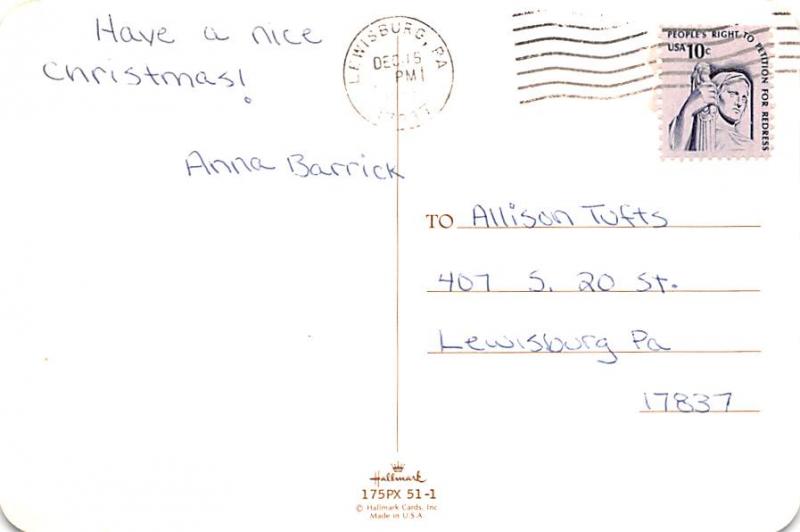 Have a nice
christmas!
Anna Barrick
LEWISBURG, PA
DEC 15
PM
PEOPLE'S RIGHT TO PETITION FOR REDRESS
USA 10c
TO Allison Tufts
407 S. 20 St.
Lewisburg Pa
17837
Hallmark
175PX 51-1
© Hallmark Cards, Inc
Made in U.S.A.